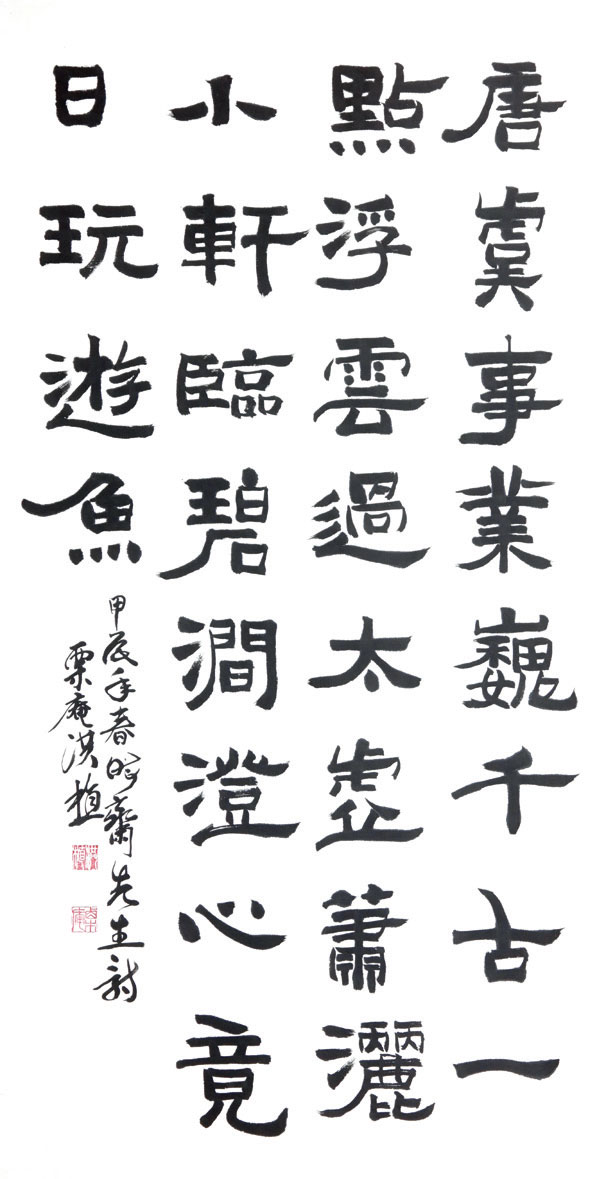 唐虞事業巍千古一
點浮雲過太虛蕭灑
小軒臨碧澗澄心竟
日玩遊魚
甲辰年春晦齋先生詩
栗庵洪植